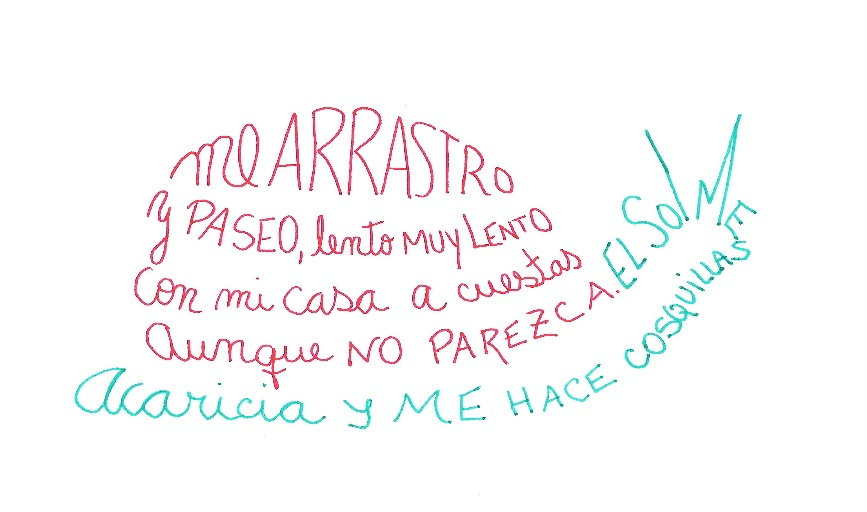 me ARRASTRO
y PASEO, lento MUY LENTO
con mi casa a cuestas
aunque NO PAREZCA.
EL SOl ME
acaricia y ME HACE COSQUILLAS